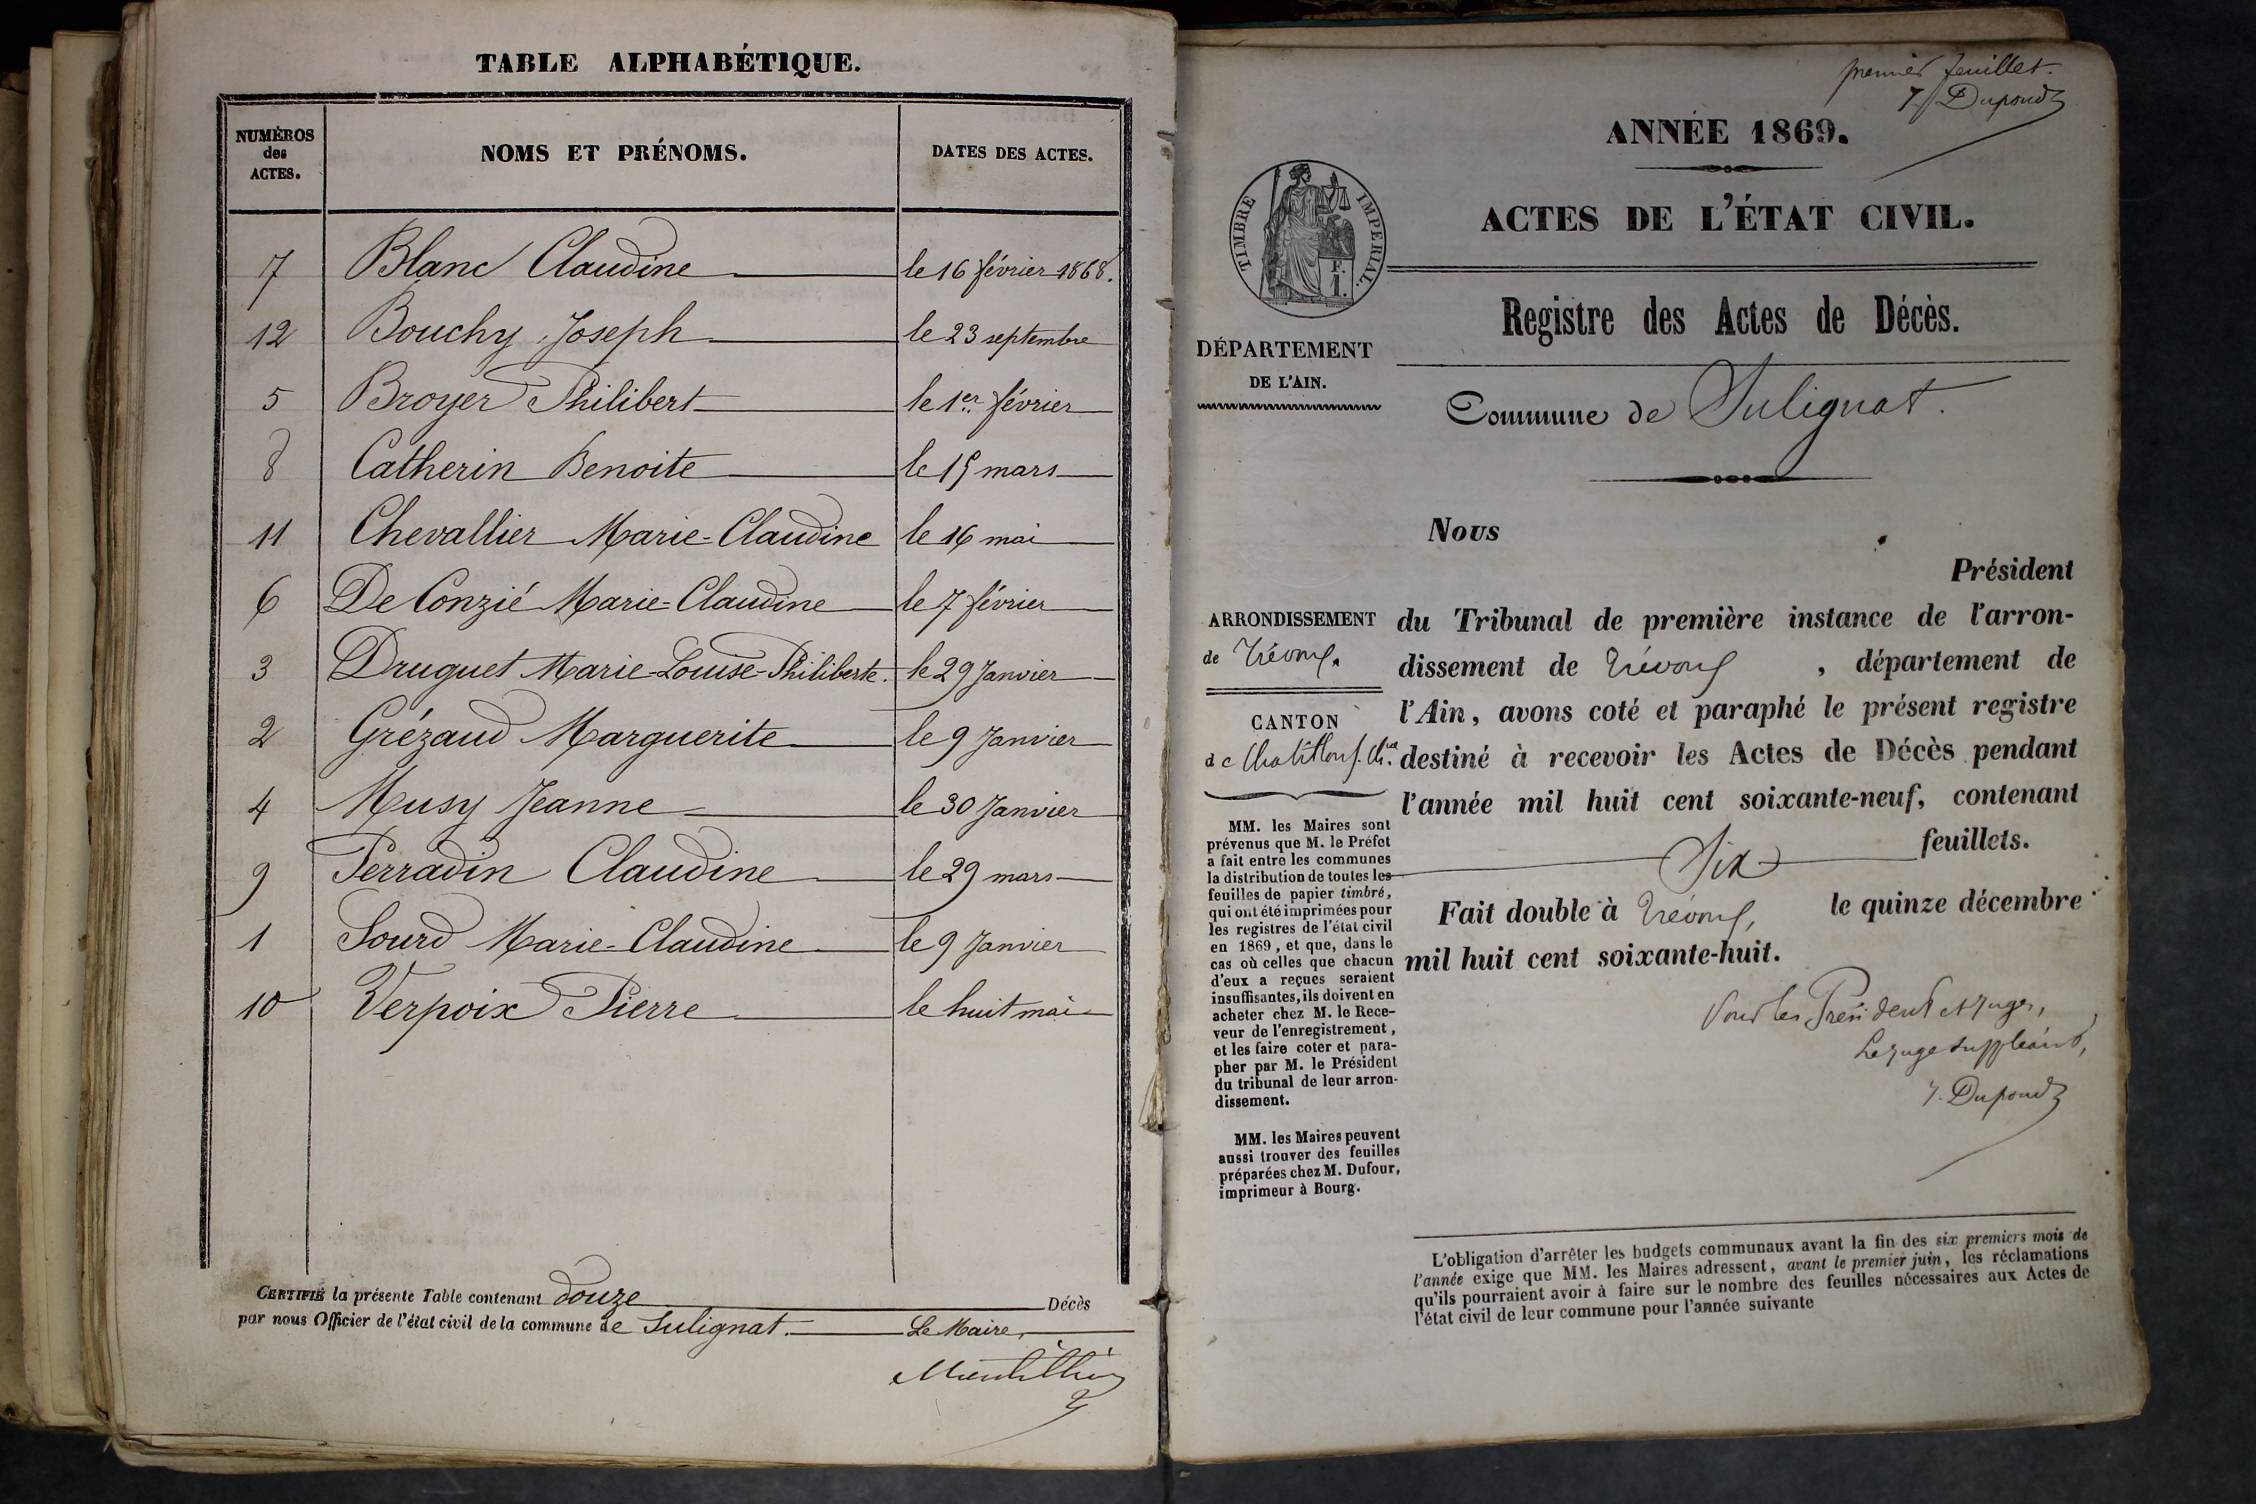 TABLE ALPHABÉTIQUE.
NUMÉROS des ACTES. NOMS ET PRÉNOMS. DATES DES ACTES.
7 Blanc Claudine le 16 février 1868.
12 Bouchy Joseph le 23 septembre
5 Broyer Philibert le 1er février
8 Catherin Benoite le 15 mars
11 Chevallier Marie-Claudine le 16 mai
6 De Conzié Marie-Claudine le 7 février
3 Druguet Marie-Louise-Philiberte. le 29 Janvier
2 Grézaud Marguerite le 9 Janvier
4 Musy Jeanne le 30 Janvier
9 Perradin Claudine le 29 mars
1 Sourd Marie-Claudine le 9 Janvier
10 Verpoix Pierre le huit mai
CERTIFIÉ la présente Table contenant douze Décès
par nous Officier de l'état civil de la commune de Sulignat. Le Maire,
premier feuillet.
J. Dupond
ANNÉE 1869.
ACTES DE L'ÉTAT CIVIL.
TIMBRE IMPERIAL.
F.
1.
Registre des Actes de Décès.
DÉPARTEMENT
DE L'AIN.
Commune de Sulignat.
Nous
Président
du Tribunal de première instance de l'arron-
dissement de Trévoux, département de
l'Ain, avons coté et paraphé le présent registre
destiné à recevoir les Actes de Décès pendant
l'année mil huit cent soixante-neuf, contenant
Six feuillets.
Fait double à Trévoux, le quinze décembre
mil huit cent soixante-huit.
Pour les Président et Juges,
Le juge suppléant,
J. Dupond
ARRONDISSEMENT
de Trévoux.
CANTON
de Chatillon s. Ch.
MM. les Maires sont
prévenus que M. le Préfet
a fait entre les communes
la distribution de toutes les
feuilles de papier timbré,
qui ont été imprimées pour
les registres de l'état civil
en 1869, et que, dans le
cas où celles que chacun
d'eux a reçues seraient
insuffisantes, ils doivent en
acheter chez M. le Rece-
veur de l'enregistrement,
et les faire coter et para-
pher par M. le Président
du tribunal de leur arron-
dissement.
MM. les Maires peuvent
aussi trouver des feuilles
préparées chez M. Dufour,
imprimeur à Bourg.
L'obligation d'arrêter les budgets communaux avant la fin des six premiers mois de
l'année exige que MM. les Maires adressent, avant le premier juin, les réclamations
qu'ils pourraient avoir à faire sur le nombre des feuilles nécessaires aux Actes de
l'état civil de leur commune pour l'année suivante